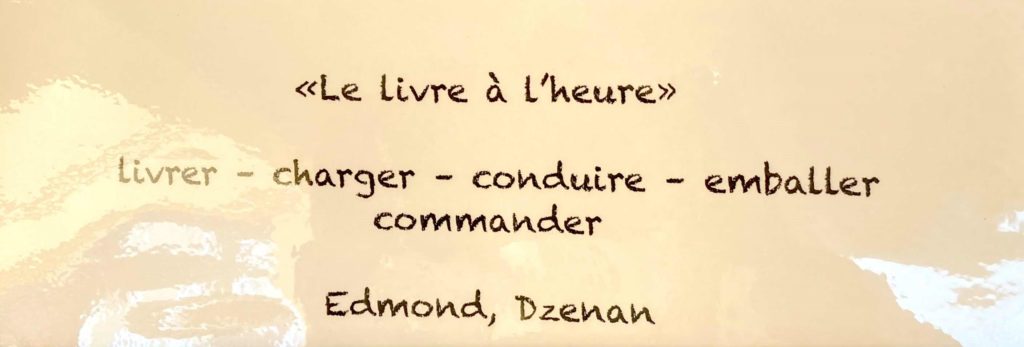 «Le livre à l'heure»
livrer - charger - conduire - emballer
commander
Edmond, Dzenan